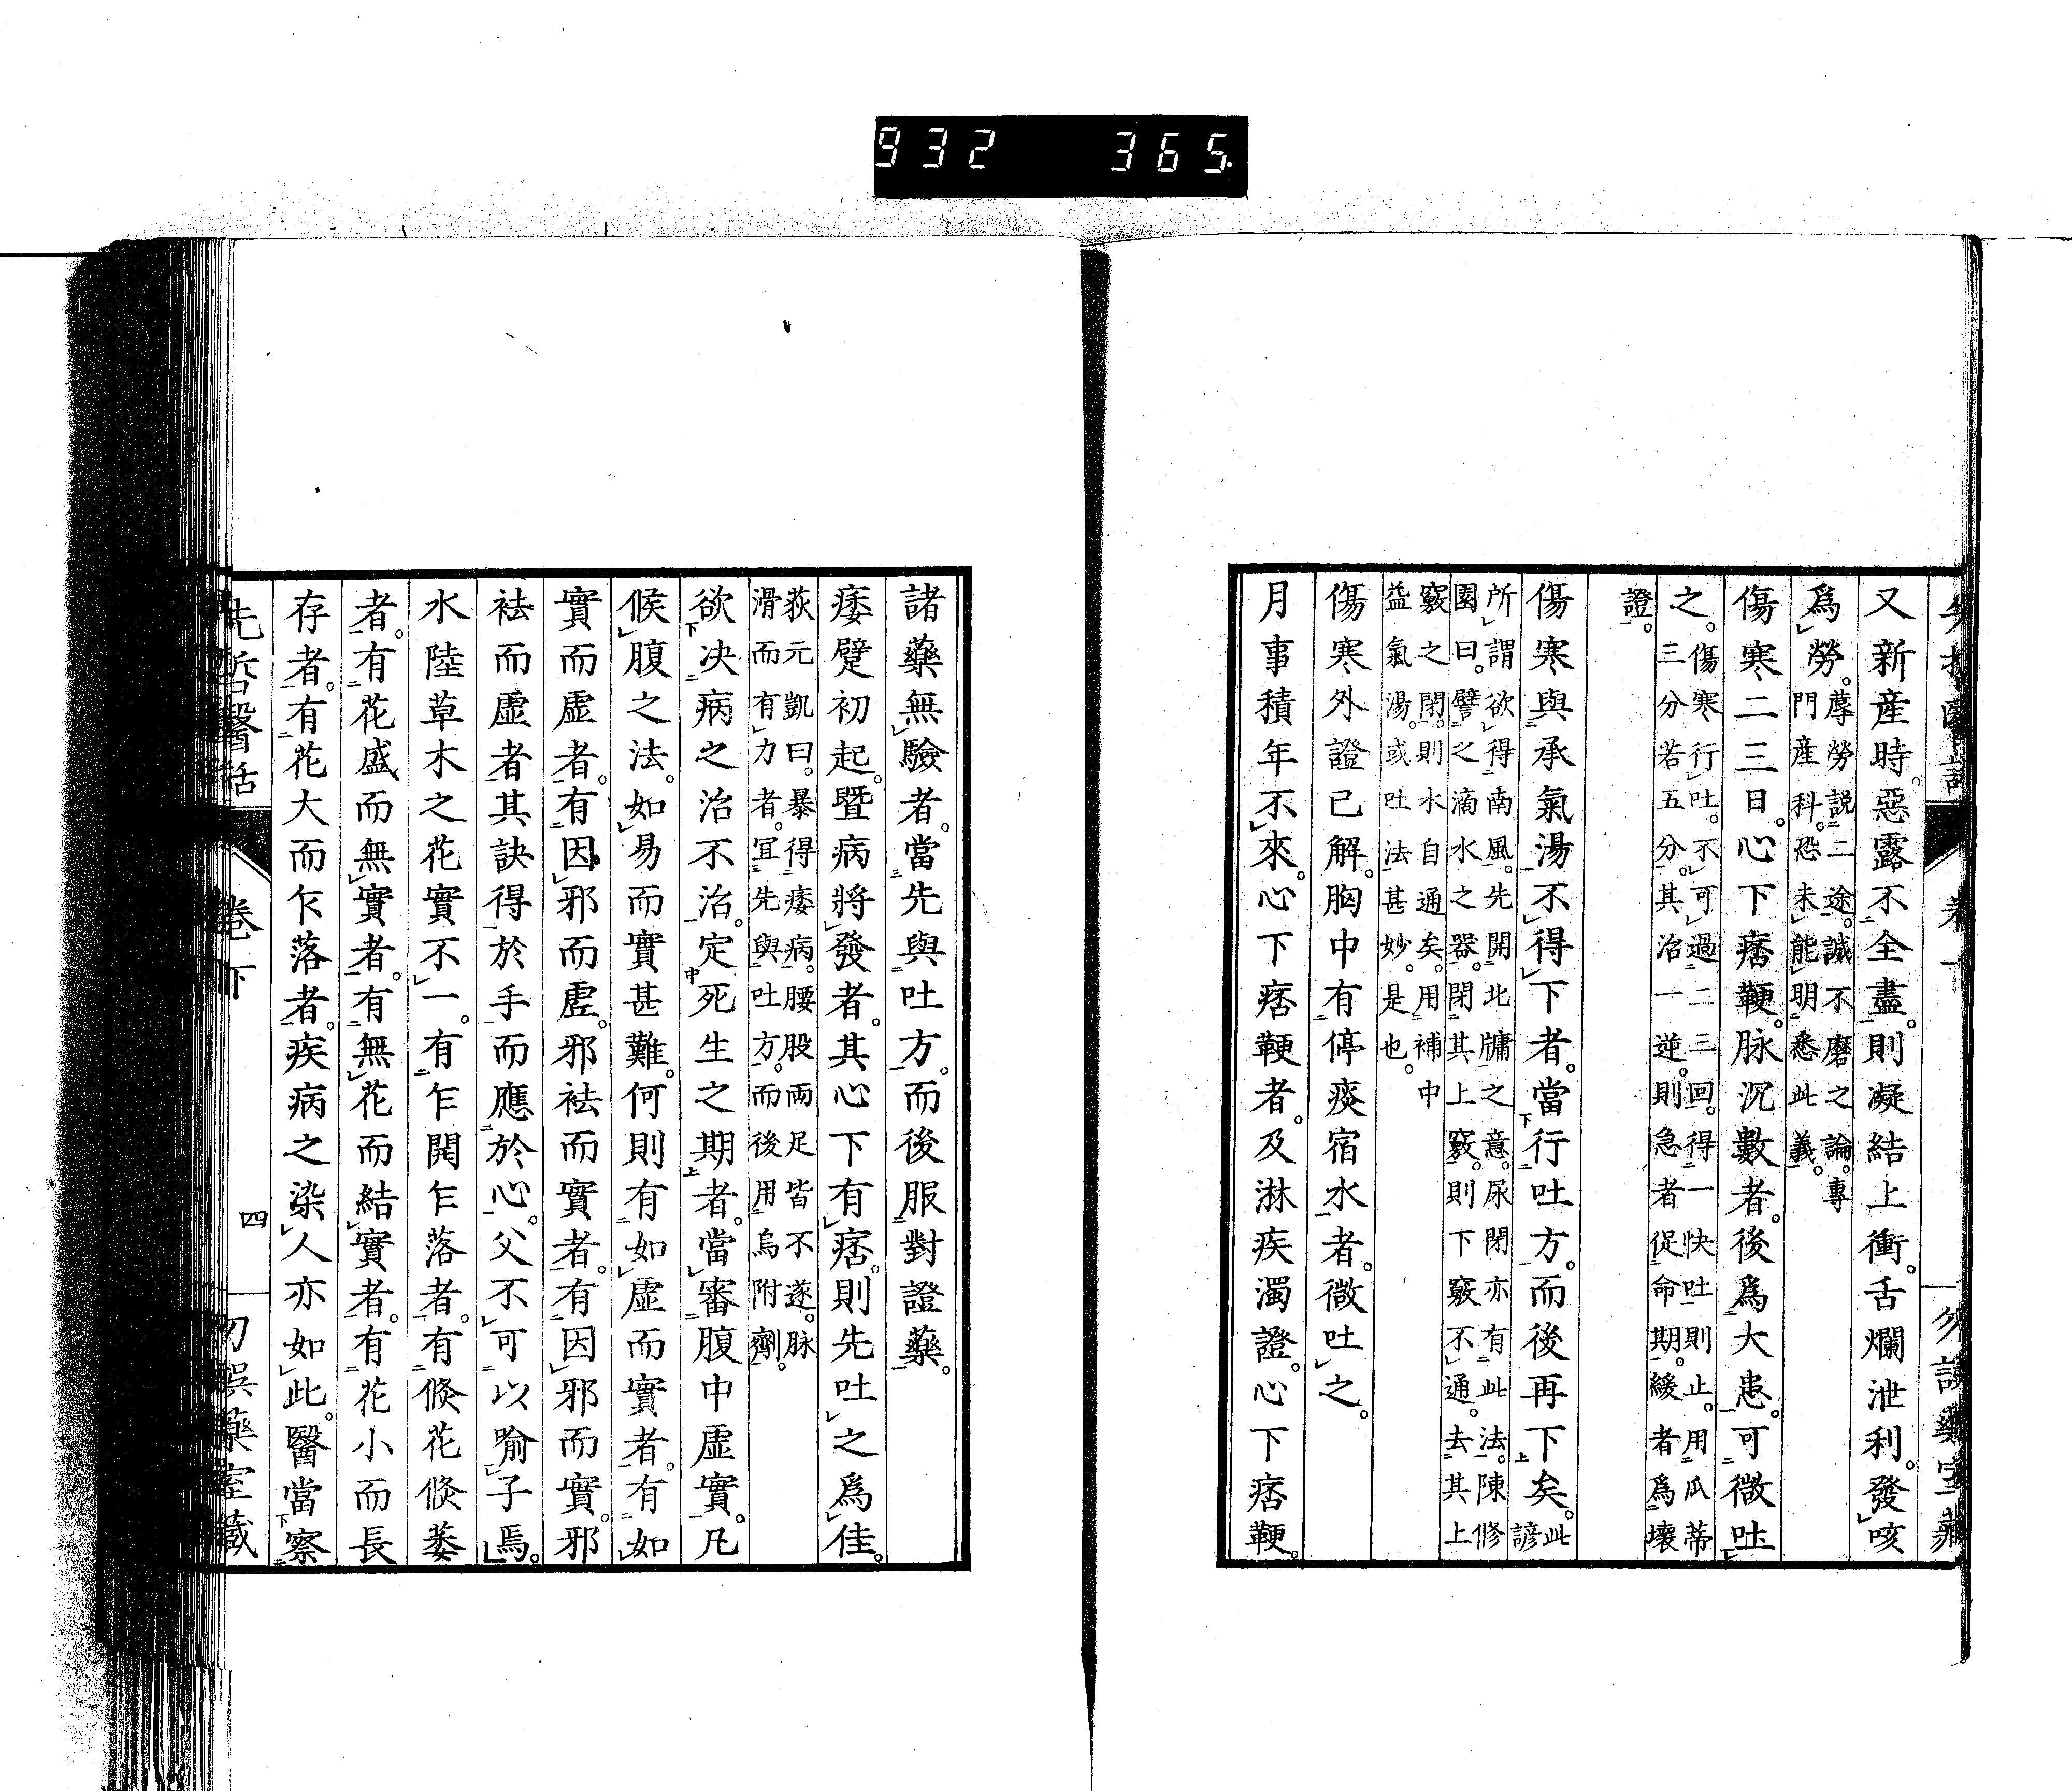 932 365
又新産時。惡露不全盡。則凝結上衝。舌爛泄利。發咳
爲勞。
蓐勞説二途。誠不磨之論。專
門産科。恐未能明悉此義。
傷寒二三日。心下痞鞕。脉沉數者。後爲大患。可微吐
之。
傷寒行吐。不可過二三回。得一快吐則止。用瓜蒂
三分若五分。其治一逆。則急者促命期。緩者爲壞
證。
傷寒與承氣湯不得下者。當行吐方。而後再下矣。
此
諺
所謂欲得南風。先開北牗之意。尿閉亦有此法。陳修
園曰。譬之滴水之器。閉其上竅。則下竅不通。去其上
竅之閉。則水自通矣。用補中
益氣湯。或吐法甚妙。是也。
傷寒外證已解。胸中有停痰宿水者。微吐之。
月事積年不來。心下痞鞕者。及淋疾濁證。心下痞鞕。
諸藥無驗者。當先與吐方。而後服對證藥。
痿躄初起。暨病將發者。其心下有痞。則先吐之爲佳。
荻元凱曰。暴得痿病。腰股両足皆不遂。脉
滑而有力者。宜先與吐方。而後用烏附劑。
欲决病之治不治。定死生之期者。當審腹中虛實。凡
候腹之法。如易而實甚難。何則有如虛而實者。有如
實而虛者。有因邪而虛。邪祛而實者。有因邪而實。邪
祛而虛者其訣得於手而應於心。父不可以喩子焉。
水陸草木之花實不一。有乍開乍落者。有倐花倐萎
者。有花盛而無實者。有無花而結實者。有花小而長
存者。有花大而乍落者。疾病之染人亦如此。醫當察
先哲醫話
卷下
四
勿誤藥室藏